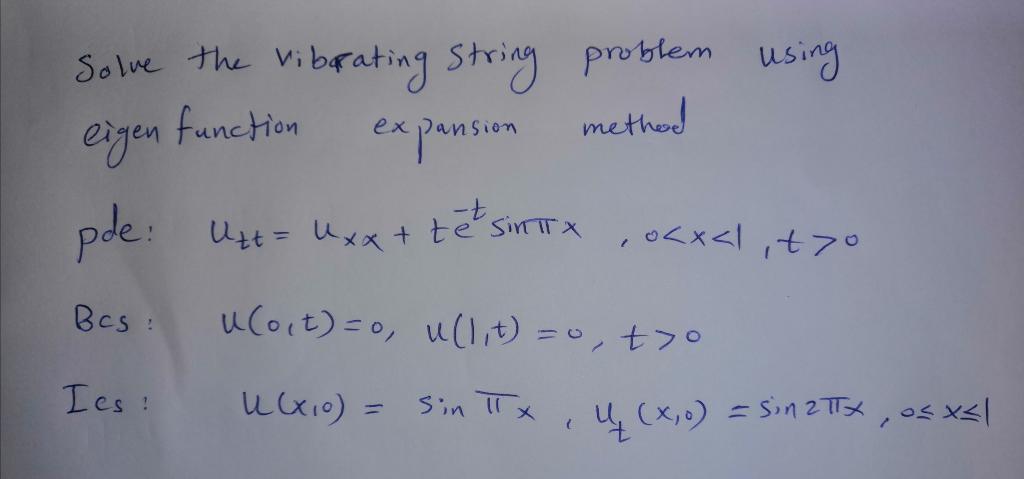 Solve the vibrating string problem using
eigen function expansion method
pde: Utt = Uxx + te^-t sin πx , 0<x<1 , t>0
Bcs : U(0,t)=0, U(1,t) = 0, t>0
Ics : U(x,0) = sin πx , Ut (x,0) = sin 2πx , 0≤x≤1